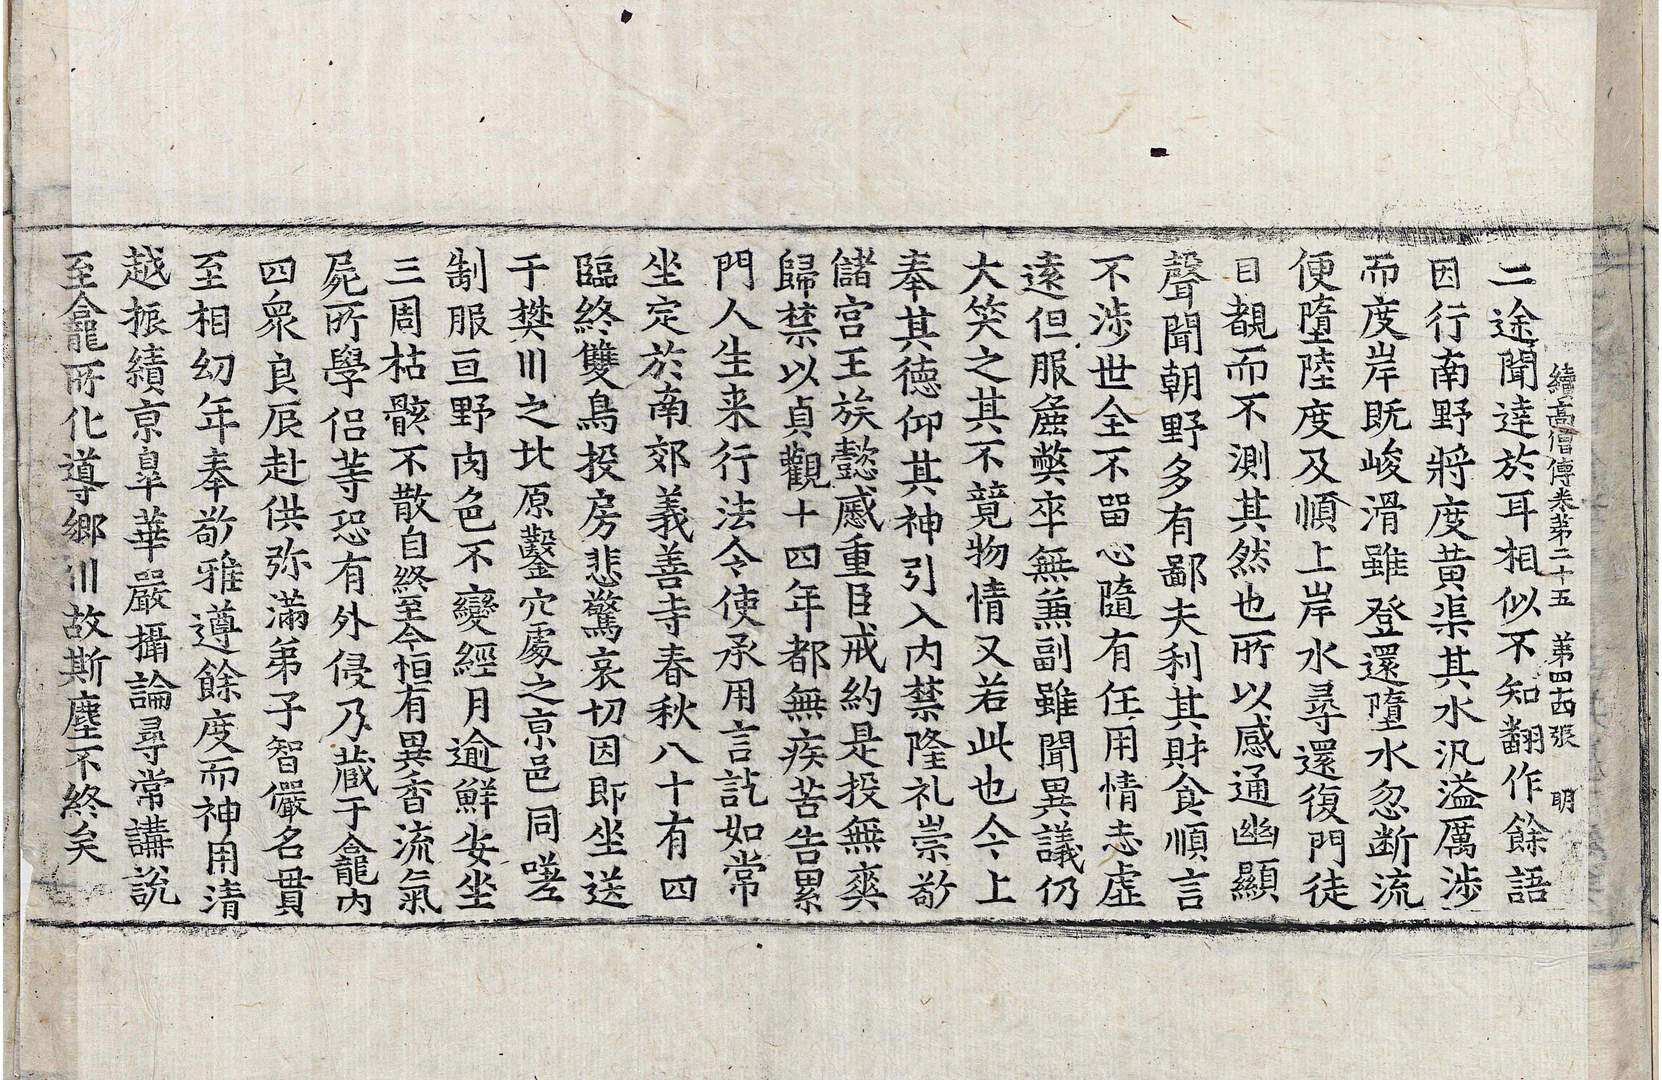 續高僧傳卷第二十五 第四十四張 明
二途聞達於耳相似不知翻作餘語
因行南野將度黃渠其水汎溢厲涉
而度岸既峻滑雖登還墮水忽断流
便墮陸度及順上岸水尋還復門徒
目覩而不測其然也所以感通幽顯
聲聞朝野多有鄙夫利其財食順言
不涉世全不留心隨有任用情志虛
遠但服麁弊卒無兼副雖聞異議仍
大笑之其不競物情又若此也今上
奉其徳仰其神引入内禁隆礼崇敬
儲宮王族懿戚重臣戒約是投無爽
歸禁以貞觀十四年都無疾苦告累
門人生来行法令使承用言訖如常
坐定於南郊義善寺春秋八十有四
臨終雙鳥投房悲驚哀切因即坐送
于樊川之北原鑿穴處之京邑同嗟
制服亘野肉色不變經月逾鮮安坐
三周枯骸不散自終至今恒有異香流氣
屍所學侶等恐有外侵乃藏于龕內
四衆良辰赴供弥滿弟子智儼名貫
至相幼年奉敬雅遵餘度而神用清
越振績京皐華嚴攝論尋常講説
至龕所化導鄉川故斯塵不終矣